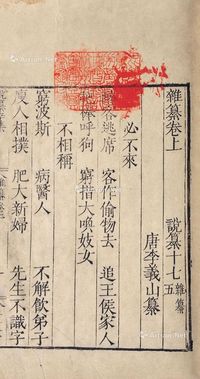 雜纂卷上
說纂十七 雜纂五
唐李義山纂
必不來
客逃席 客作偷物去 追王侯家人
棒呼狗 窮措大喚妓女
不相稱
窮波斯 病醫人 不解飲弟子
瘦人相撲 肥大新婦 先生不識字